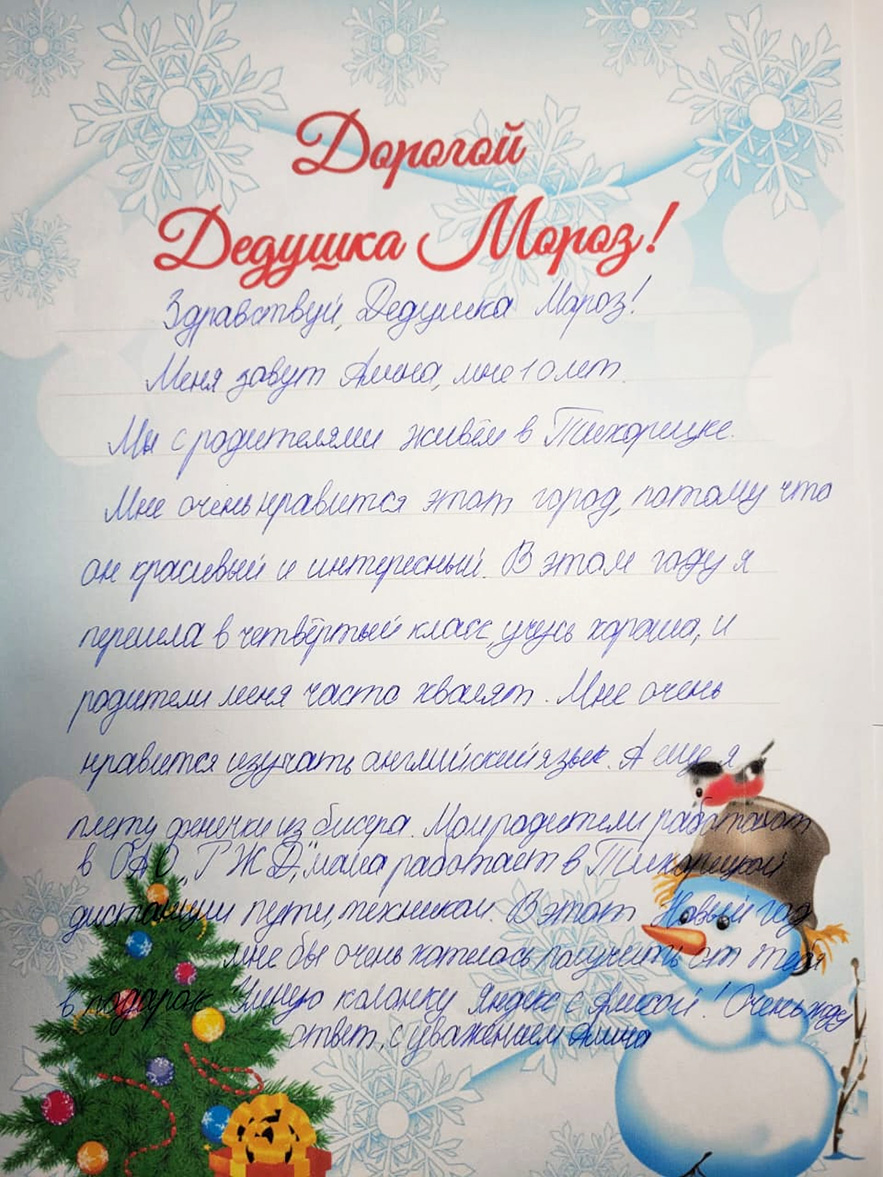 Дорогой
Дедушка Мороз!
Здравствуй, Дедушка Мороз!
Меня зовут Алина, мне 10 лет.
Мы с родителями живём в Тихорецке.
Мне очень нравится этот город, потому что
он красивый и интересный. В этом году я
перешла в четвёртый класс, учусь хорошо, и
родители меня часто хвалят. Мне очень
нравится изучать английский язык. А еще я
плету фенечки из бисера. Мои родители работают
в ОАО "РЖД", мама работает в Тихорецкой
дистанции пути, техником. В этот Новый год
мне бы очень хотелось получить от тебя
в подарок Умную колонку Яндекс с Алисой! Очень жду
ответ, с уважением Алина